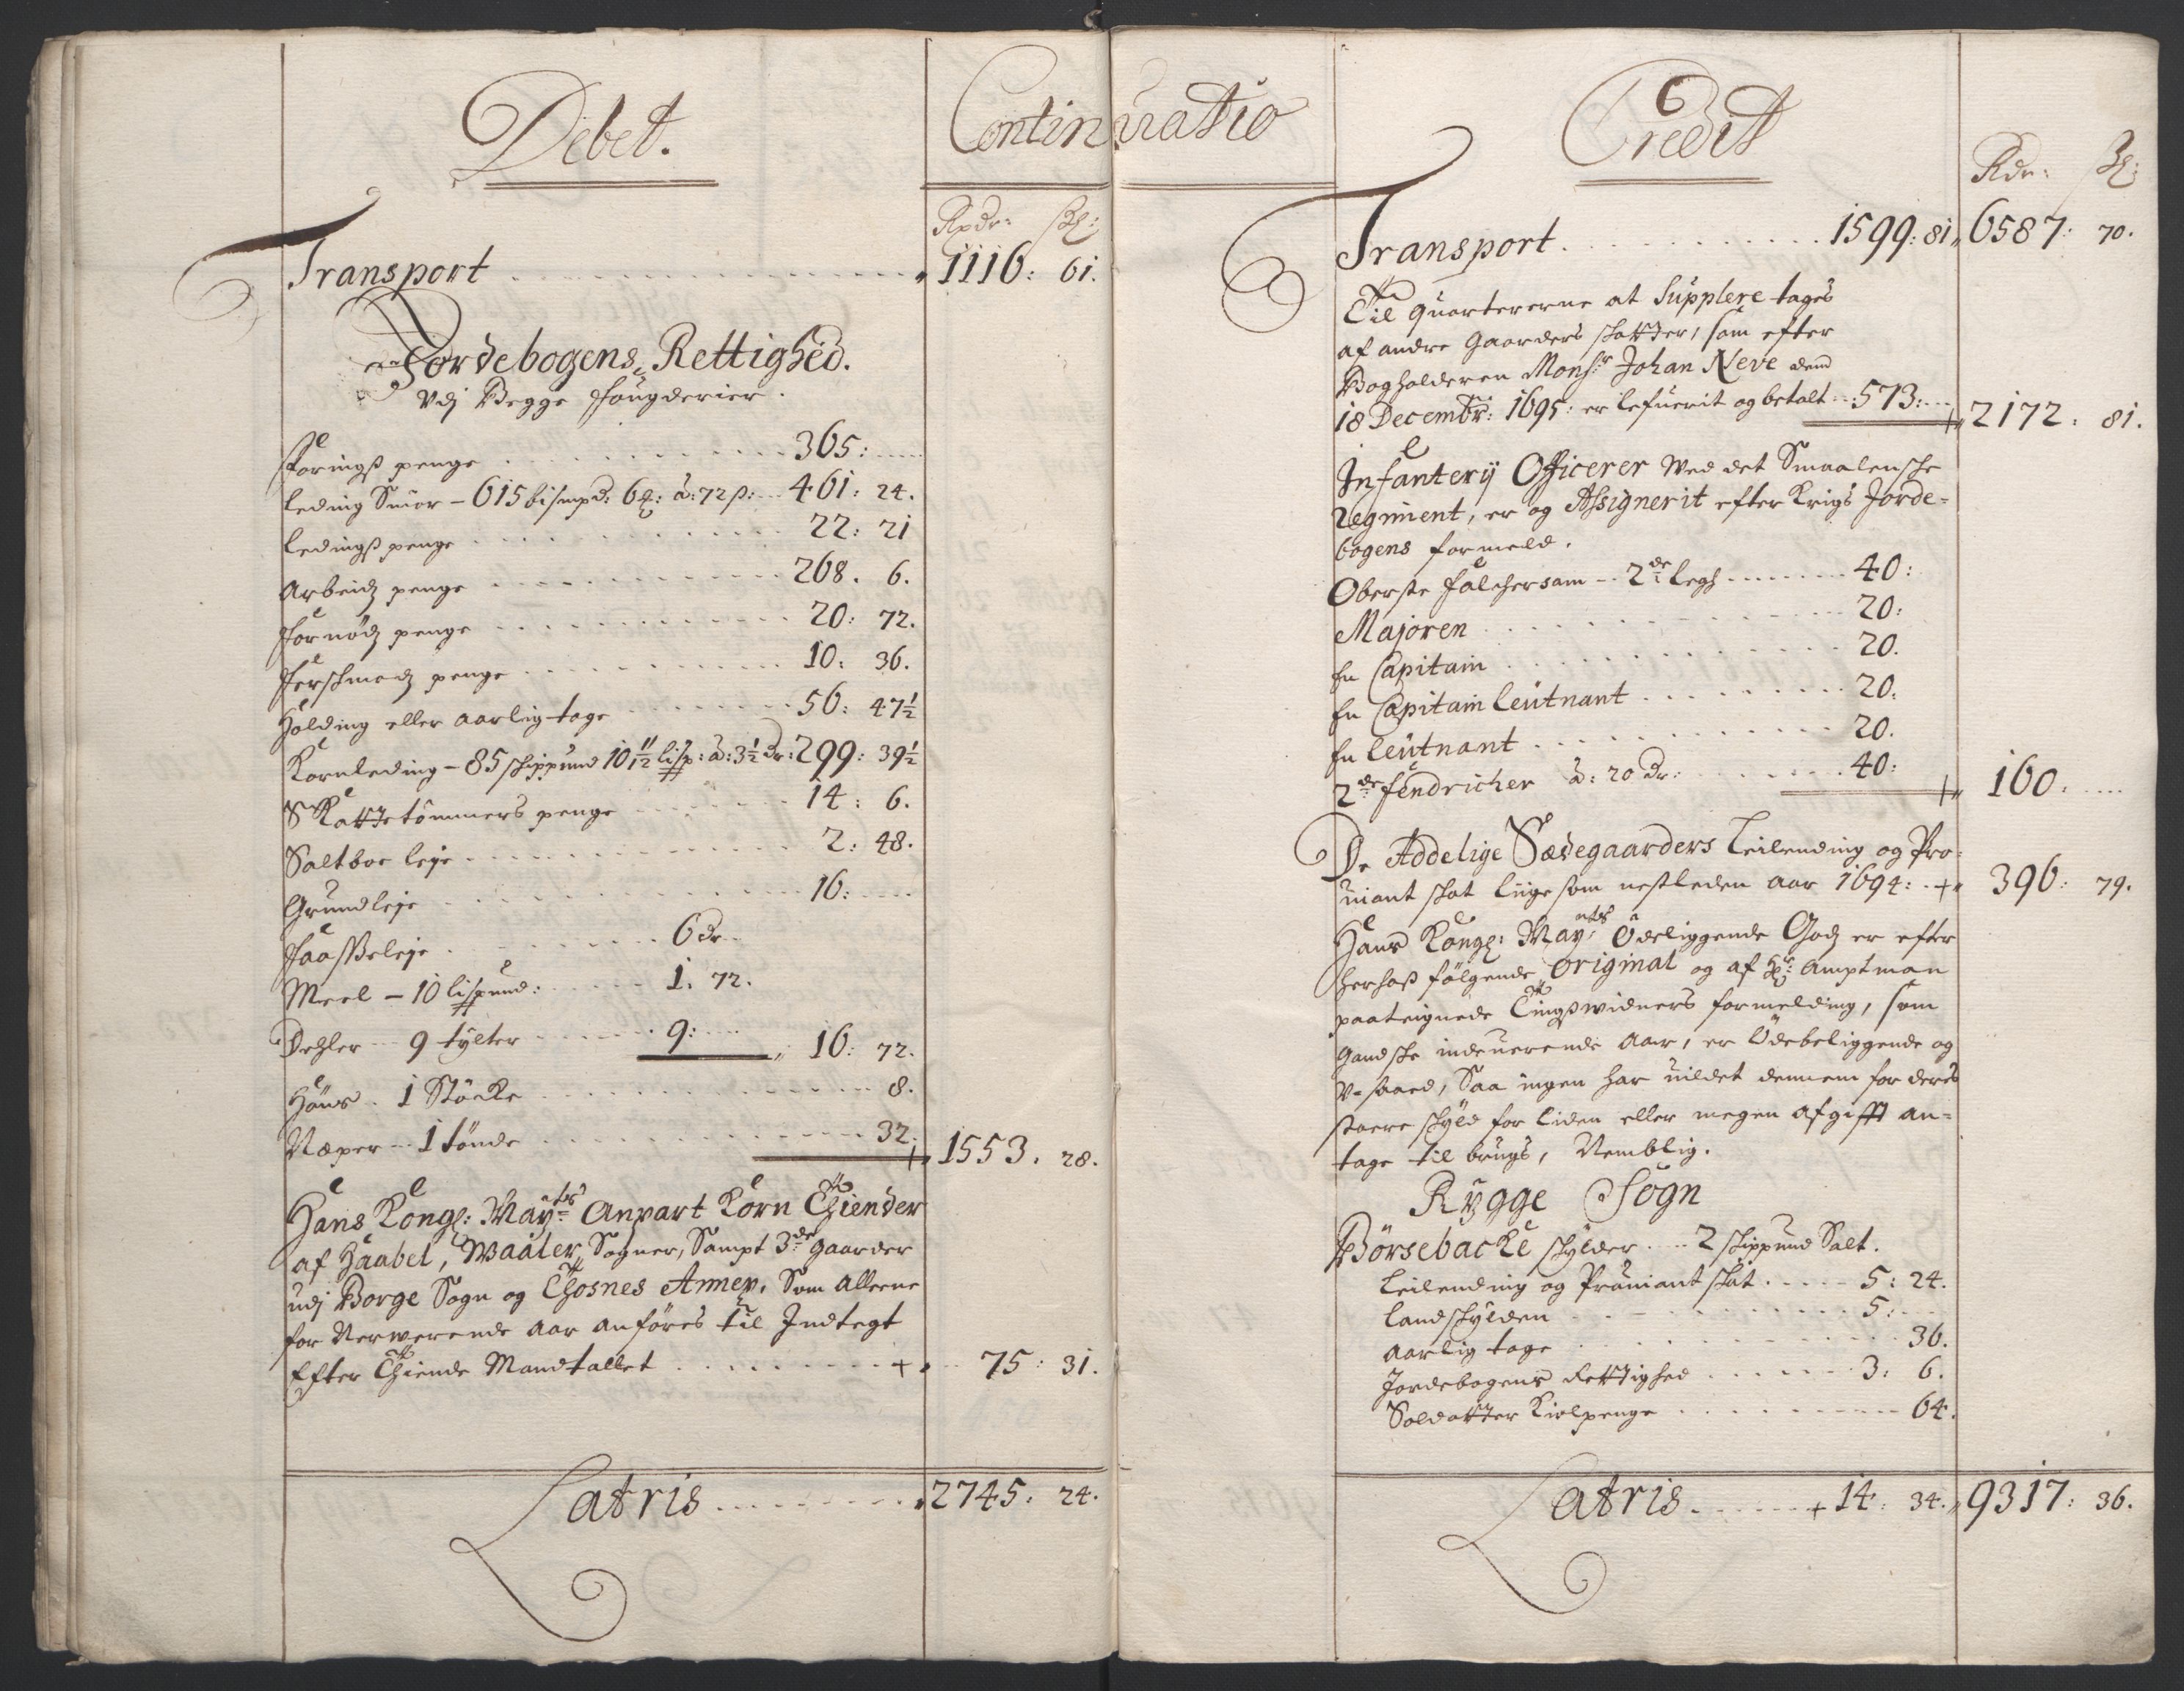 Debet.
Continuatio
Rxdr: ß:
Transport 1116: 61.
Jordebogens Rettighed.
Udj Begge fougderier.
Foringß penge 365:
Leding Smör - 615 bismpd: 6 : à: 72 ß: 461: 24.
Ledingß penge 22: 21
Arbeidz penge 268. 6.
Fornödz penge 20: 72.
Ferskmadz penge 10: 36.
Holding eller aarlig tage 56: 47½
Kornleding - 85 skippund 10 11/12 lisp: à: 3½ dr: 299: 39½
Skattetömmers penge 14: 6.
Saltboe leje 2: 48.
Grundleje 16:
Faaßeleje 6 dr
Meel - 10 lispund: 1. 72.
Dehler - 9 tylter 9: 16: 72.
Höns. 1 Stöcke 8.
Næper - 1 tönde 32. 1553. 28.
Hans Kongl: May:ts Anpart Korn Thiender
af Haabel, Waaler Sogner, Sampt 3de gaarder
udj Borge Sogn og Thosnes Annex, Som alleene
for Nerwerende aar anföres til Indtegt
Efter Thiende Mandtallet 75: 31.
Latris 2745: 24.
6
Credit
Rdr: ß:
Transport 1599: 81 6587: 70.
Til quartererne at Supplere tages
af andre gaarders skatter, som efter
Bogholderen Monsr Johan Neve dend
18 Decembr: 1695: er lefuerit og betalt 573: 2172: 81.
Infanterij Officerer wed det Smaalenske
Regiment, er og Assignerit efter Krigs Jorde-
bogens formeld.
Oberste falchersam - 2de legh 40:
Majoren 20:
En Capitain 20.
En Capitain Leutnant 20:
En Leutnant 20.
2de fendricher à: 20 dr: 40: 160.
De Addelige Sædegaarders Leilending og Pro-
uiant skat liige som nestleden aar 1694: 396: 79.
Hans Kongl: May:ts Ödeliggende Godz er efter
herhoß fölgende original og af Hr: Amptman
paateignede Tingßwidners formelding, som
gandske indeuerende Aar, er Ödebeliggende og
V-saaed, Saa ingen har uildet dennem for deres
store skyld for liden eller megen afgifft an-
tage til brugs, Nemblig.
Rygge Sogn
Börsebacke skylder 2 skippund Salt.
Leilending og Prouiant skat 5: 24.
Landskylden 5:
Aarlig tage 36.
Jordebogens Rettighed 3: 6.
Soldatter Kiolpenge 64.
Latris 14: 34. 9317: 36.